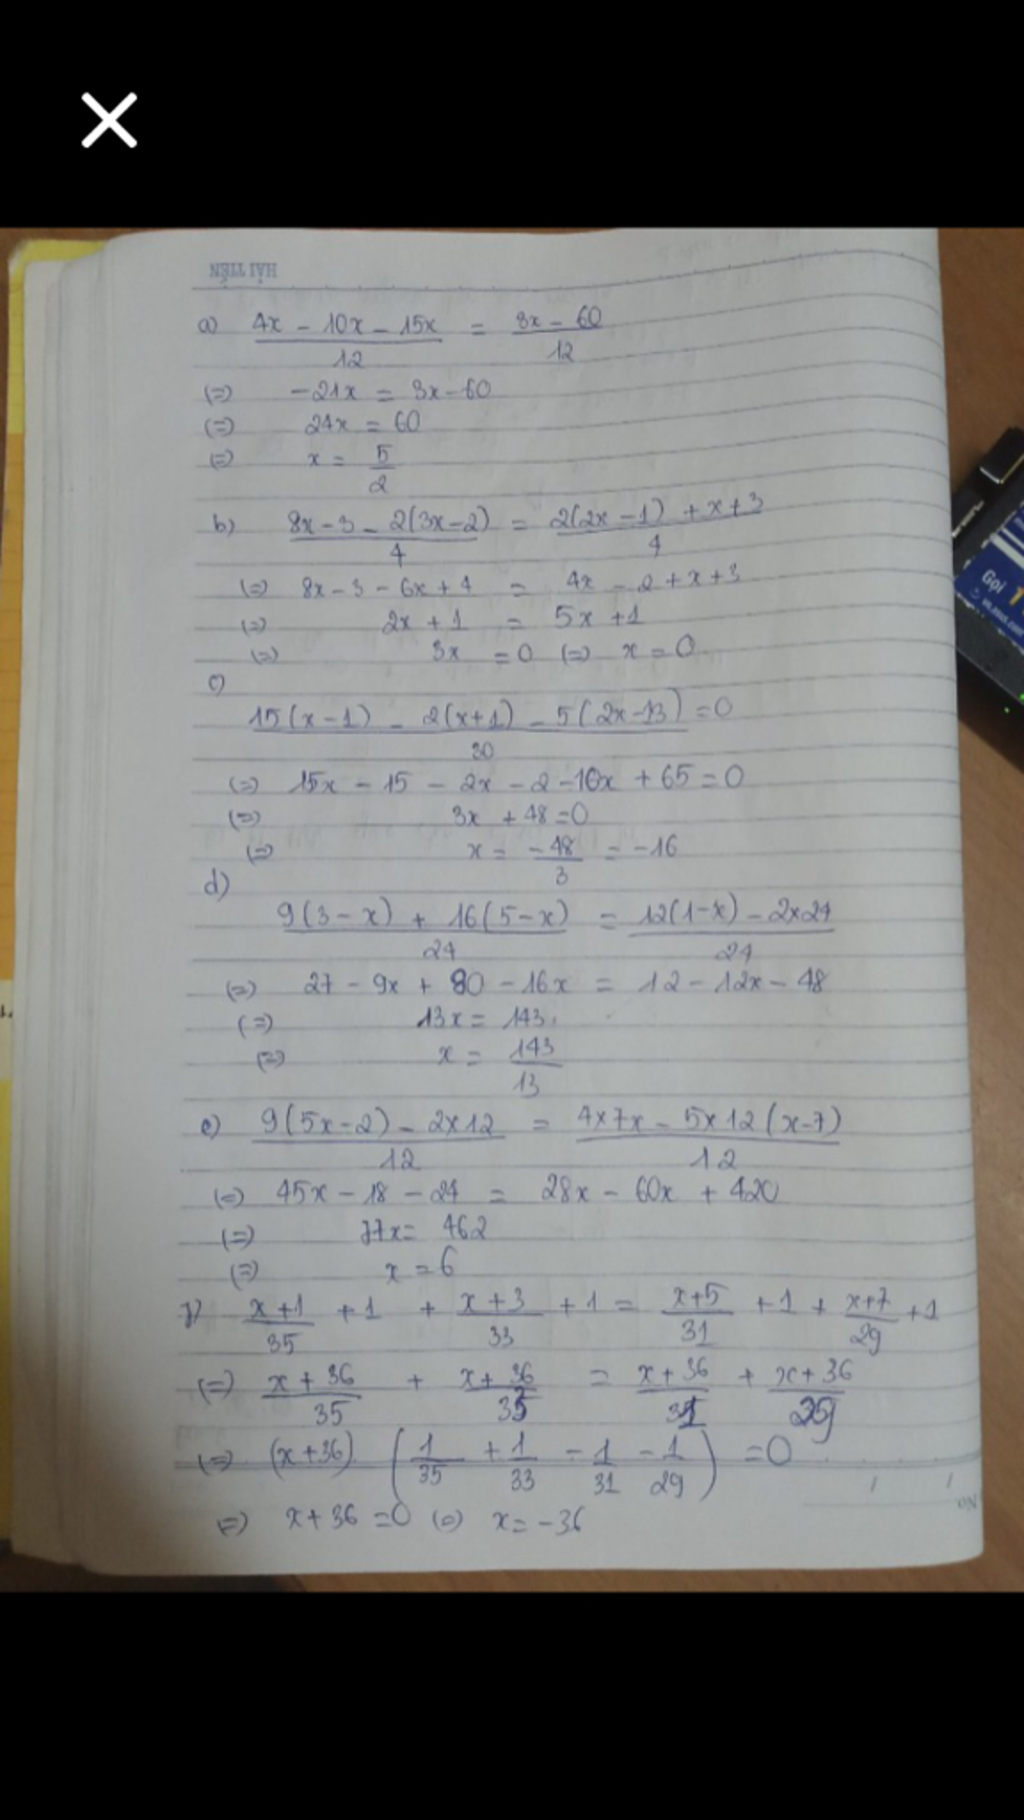 HẢI TIẾN
a) \frac{4x - 10x - 15x}{12} = \frac{3x - 60}{12}
(=) -21x = 3x - 60
(=) 24x = 60
(=) x = \frac{5}{2}
b) \frac{8x - 3 - 2(3x - 2)}{4} = \frac{2(2x - 1) + x + 3}{4}
(=) 8x - 3 - 6x + 4 = 4x - 2 + x + 3
(=) 2x + 1 = 5x + 1
(=) 3x = 0 (=) x = 0
c)
\frac{15(x - 1) - 2(x + 1) - 5(2x - 13)}{30} = 0
(=) 15x - 15 - 2x - 2 - 10x + 65 = 0
(=) 3x + 48 = 0
(=) x = \frac{-48}{3} = -16
d)
\frac{9(3 - x) + 16(5 - x)}{24} = \frac{12(1 - x) - 2x24}{24}
(=) 27 - 9x + 80 - 16x = 12 - 12x - 48
(=) 13x = 143
(=) x = \frac{143}{13}
e) \frac{9(5x - 2) - 2x12}{12} = \frac{4x7x - 5x12(x - 7)}{12}
(=) 45x - 18 - 24 = 28x - 60x + 420
(=) 77x = 462
(=) x = 6
\frac{x + 1}{35} + 1 + \frac{x + 3}{33} + 1 = \frac{x + 5}{31} + 1 + \frac{x + 7}{29} + 1
(=) \frac{x + 36}{35} + \frac{x + 36}{33} = \frac{x + 36}{31} + \frac{x + 36}{29}
(=) (x + 36) (\frac{1}{35} + \frac{1}{33} - \frac{1}{31} - \frac{1}{29}) = 0
(=) x + 36 = 0 (=) x = -36
No
Gọi